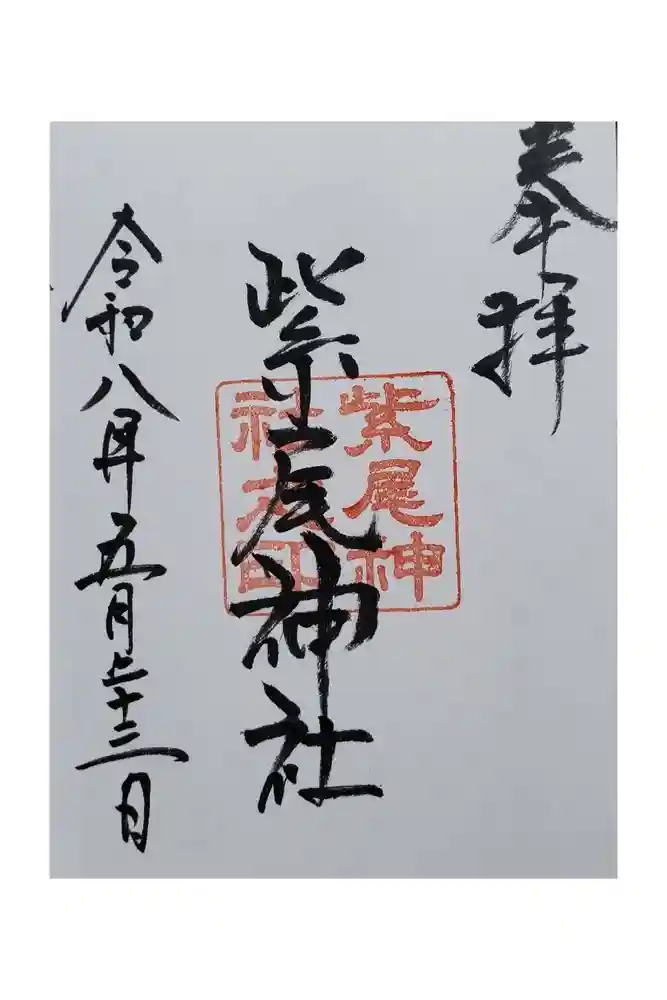 奉拝
紫尾神社
紫尾神
社 印
令和八年五月二十三日